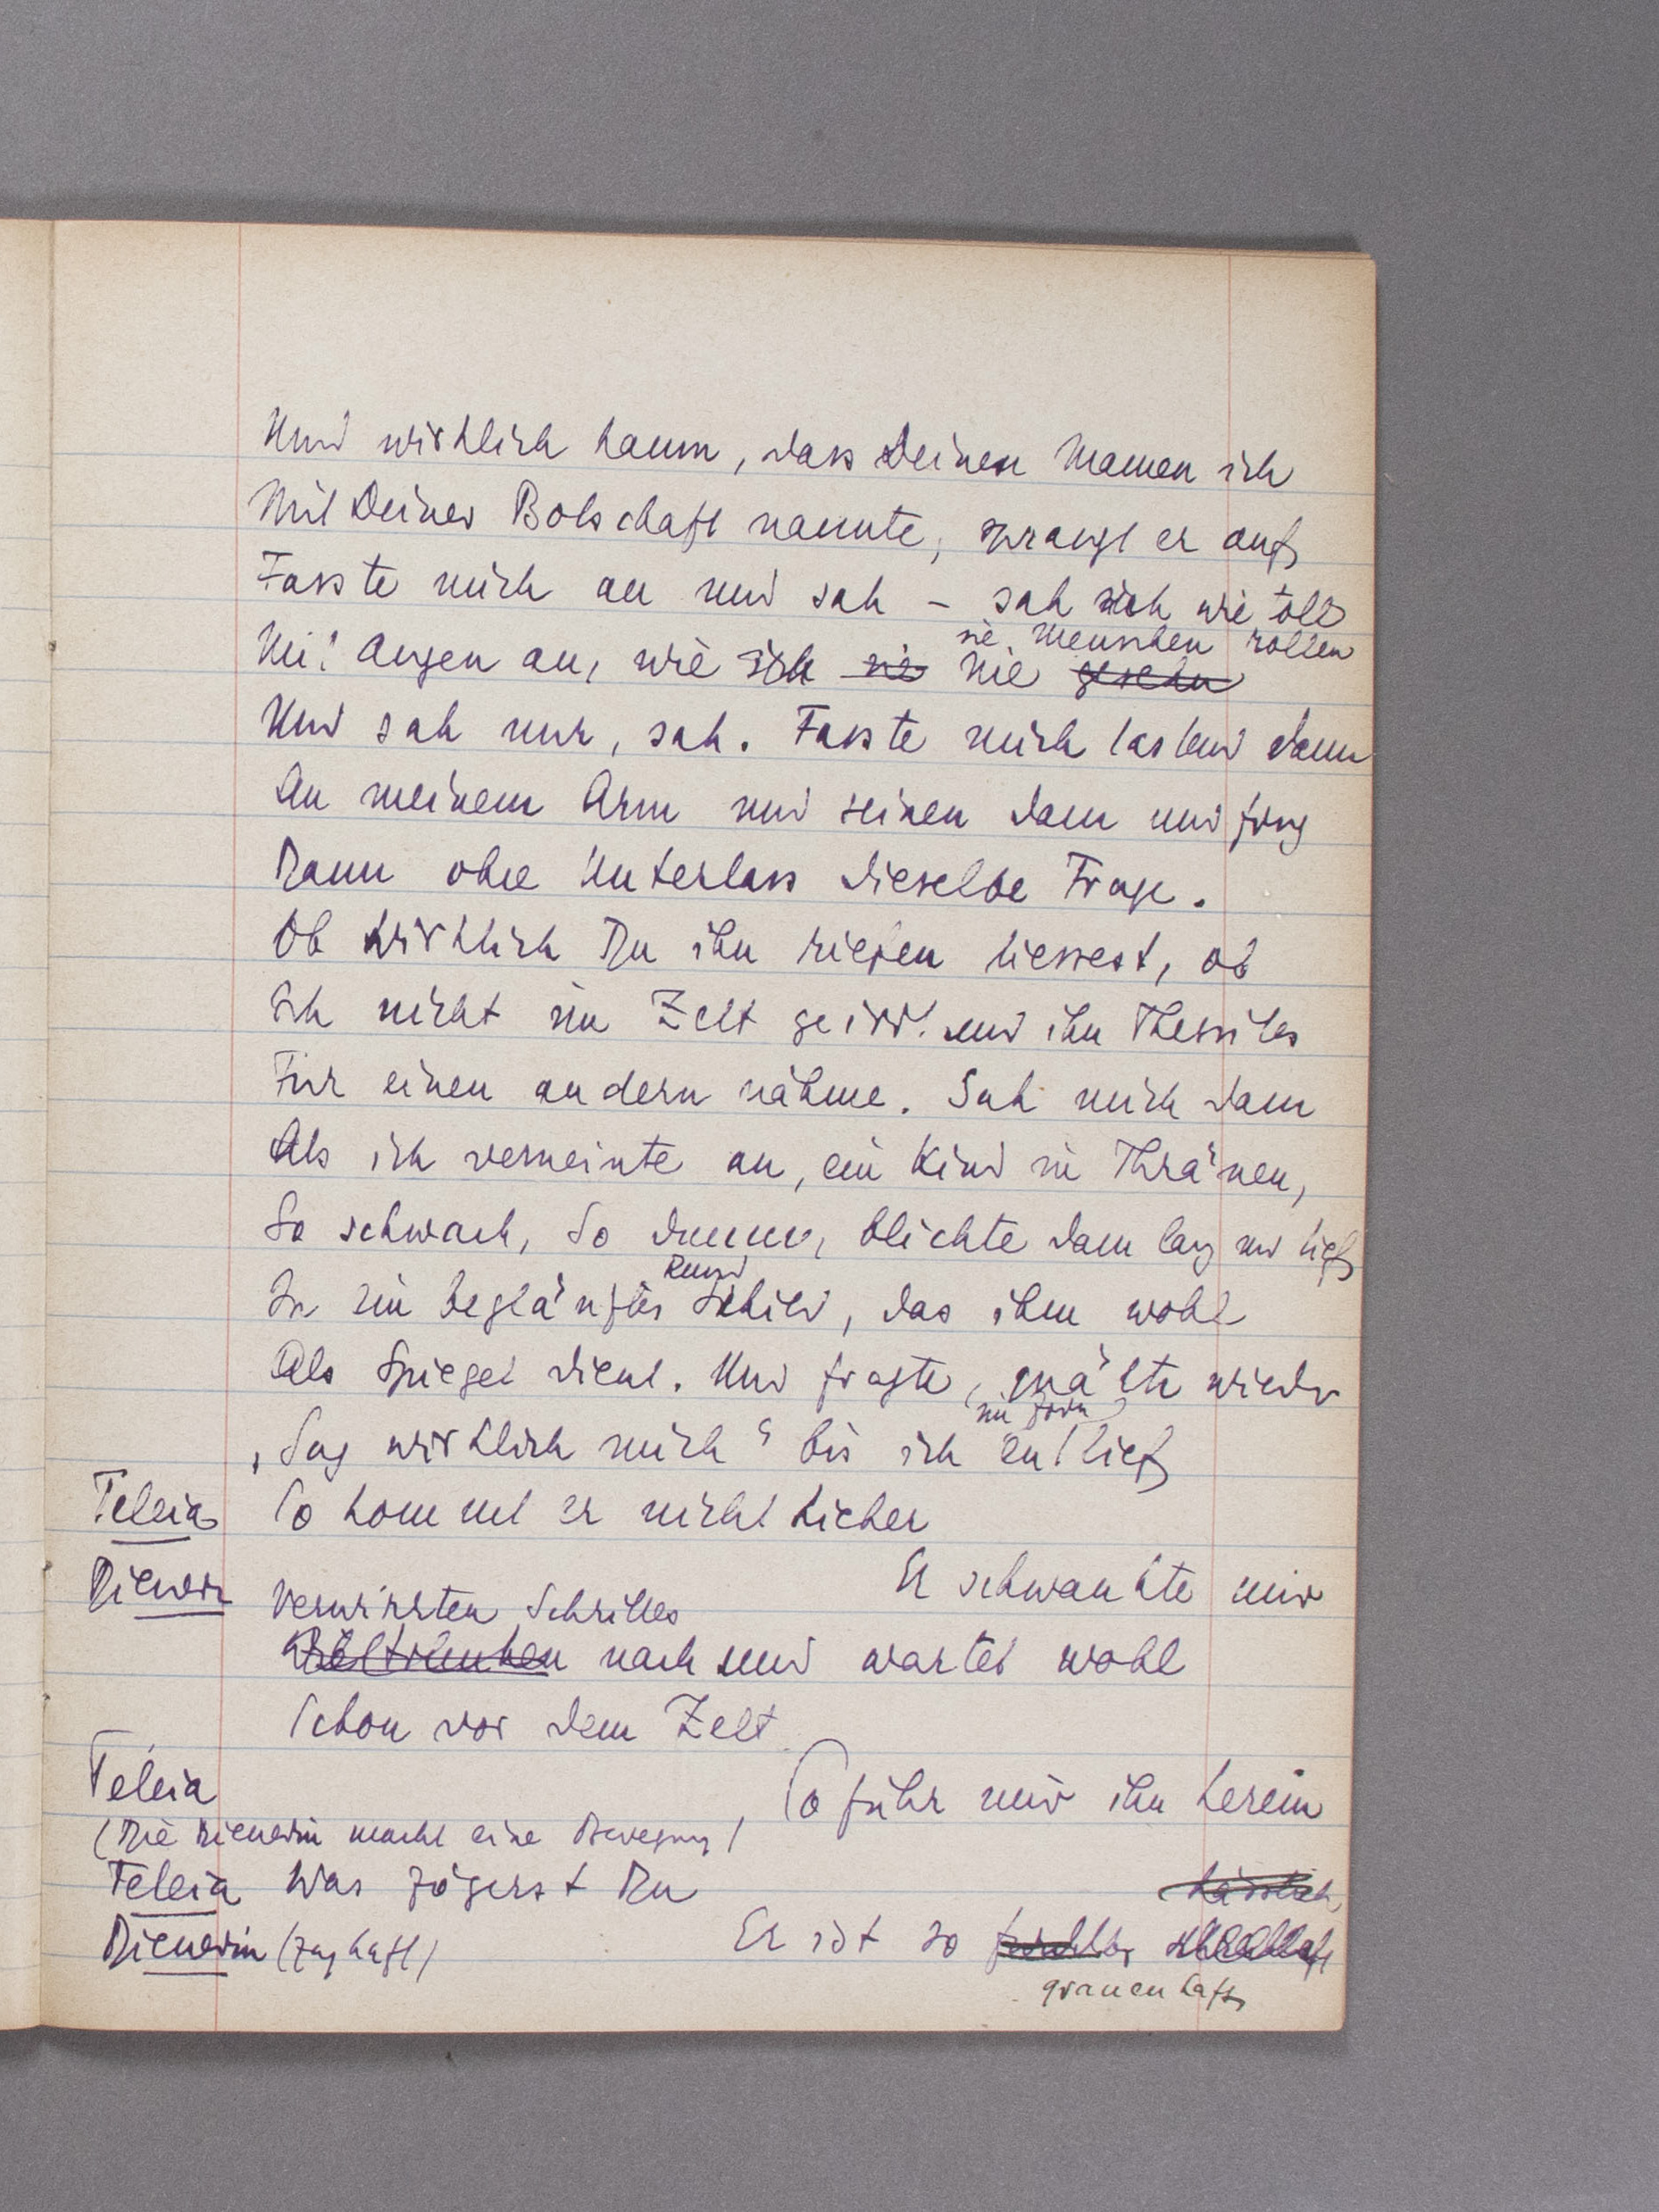 Und wirklich kaum, dass Deinen Namen ich
Mit Deiner Botschaft nannte, sprangt er auf,
Fasste mich an und sah – sah mich wie toll
sie Menschen rollen
Mit Augen an, wie ich sie nie gesehn
Und sah nur, sah. Fasste mich tastend dann
An meinem Arm und seinen dann und frug
Dann ohne Unterlass dieselbe Frage.
Ob wirklich Du ihn riefen liessest, ob
Ich nicht im Zelt geirrt und ihn Thersites
Für einen andern nähme. Sah mich dann
Als ich verneinte an, ein Kind in Thränen,
So schwach, so dumm, blickte dann lang und tief
Rund
In ein beglänztes Schild, das ihm wohl
Als Spiegel dient. Und fragte, quälte wieder
im Zorn
„Sag wirklich mich“ bis ich entlief
Teleia So kommt er nicht hieher
Dienerin Er schwankte mir
verwirrten Schrittes
nach und wartet wohl
Schon vor dem Zelt
Teleia So führ mir ihn herein
(Die Dienerin macht eine Bewegung)
Teleia Was zögerst Du
hässlich
Dienerin (zaghaft) Er ist so furchtbar
grauenhaft